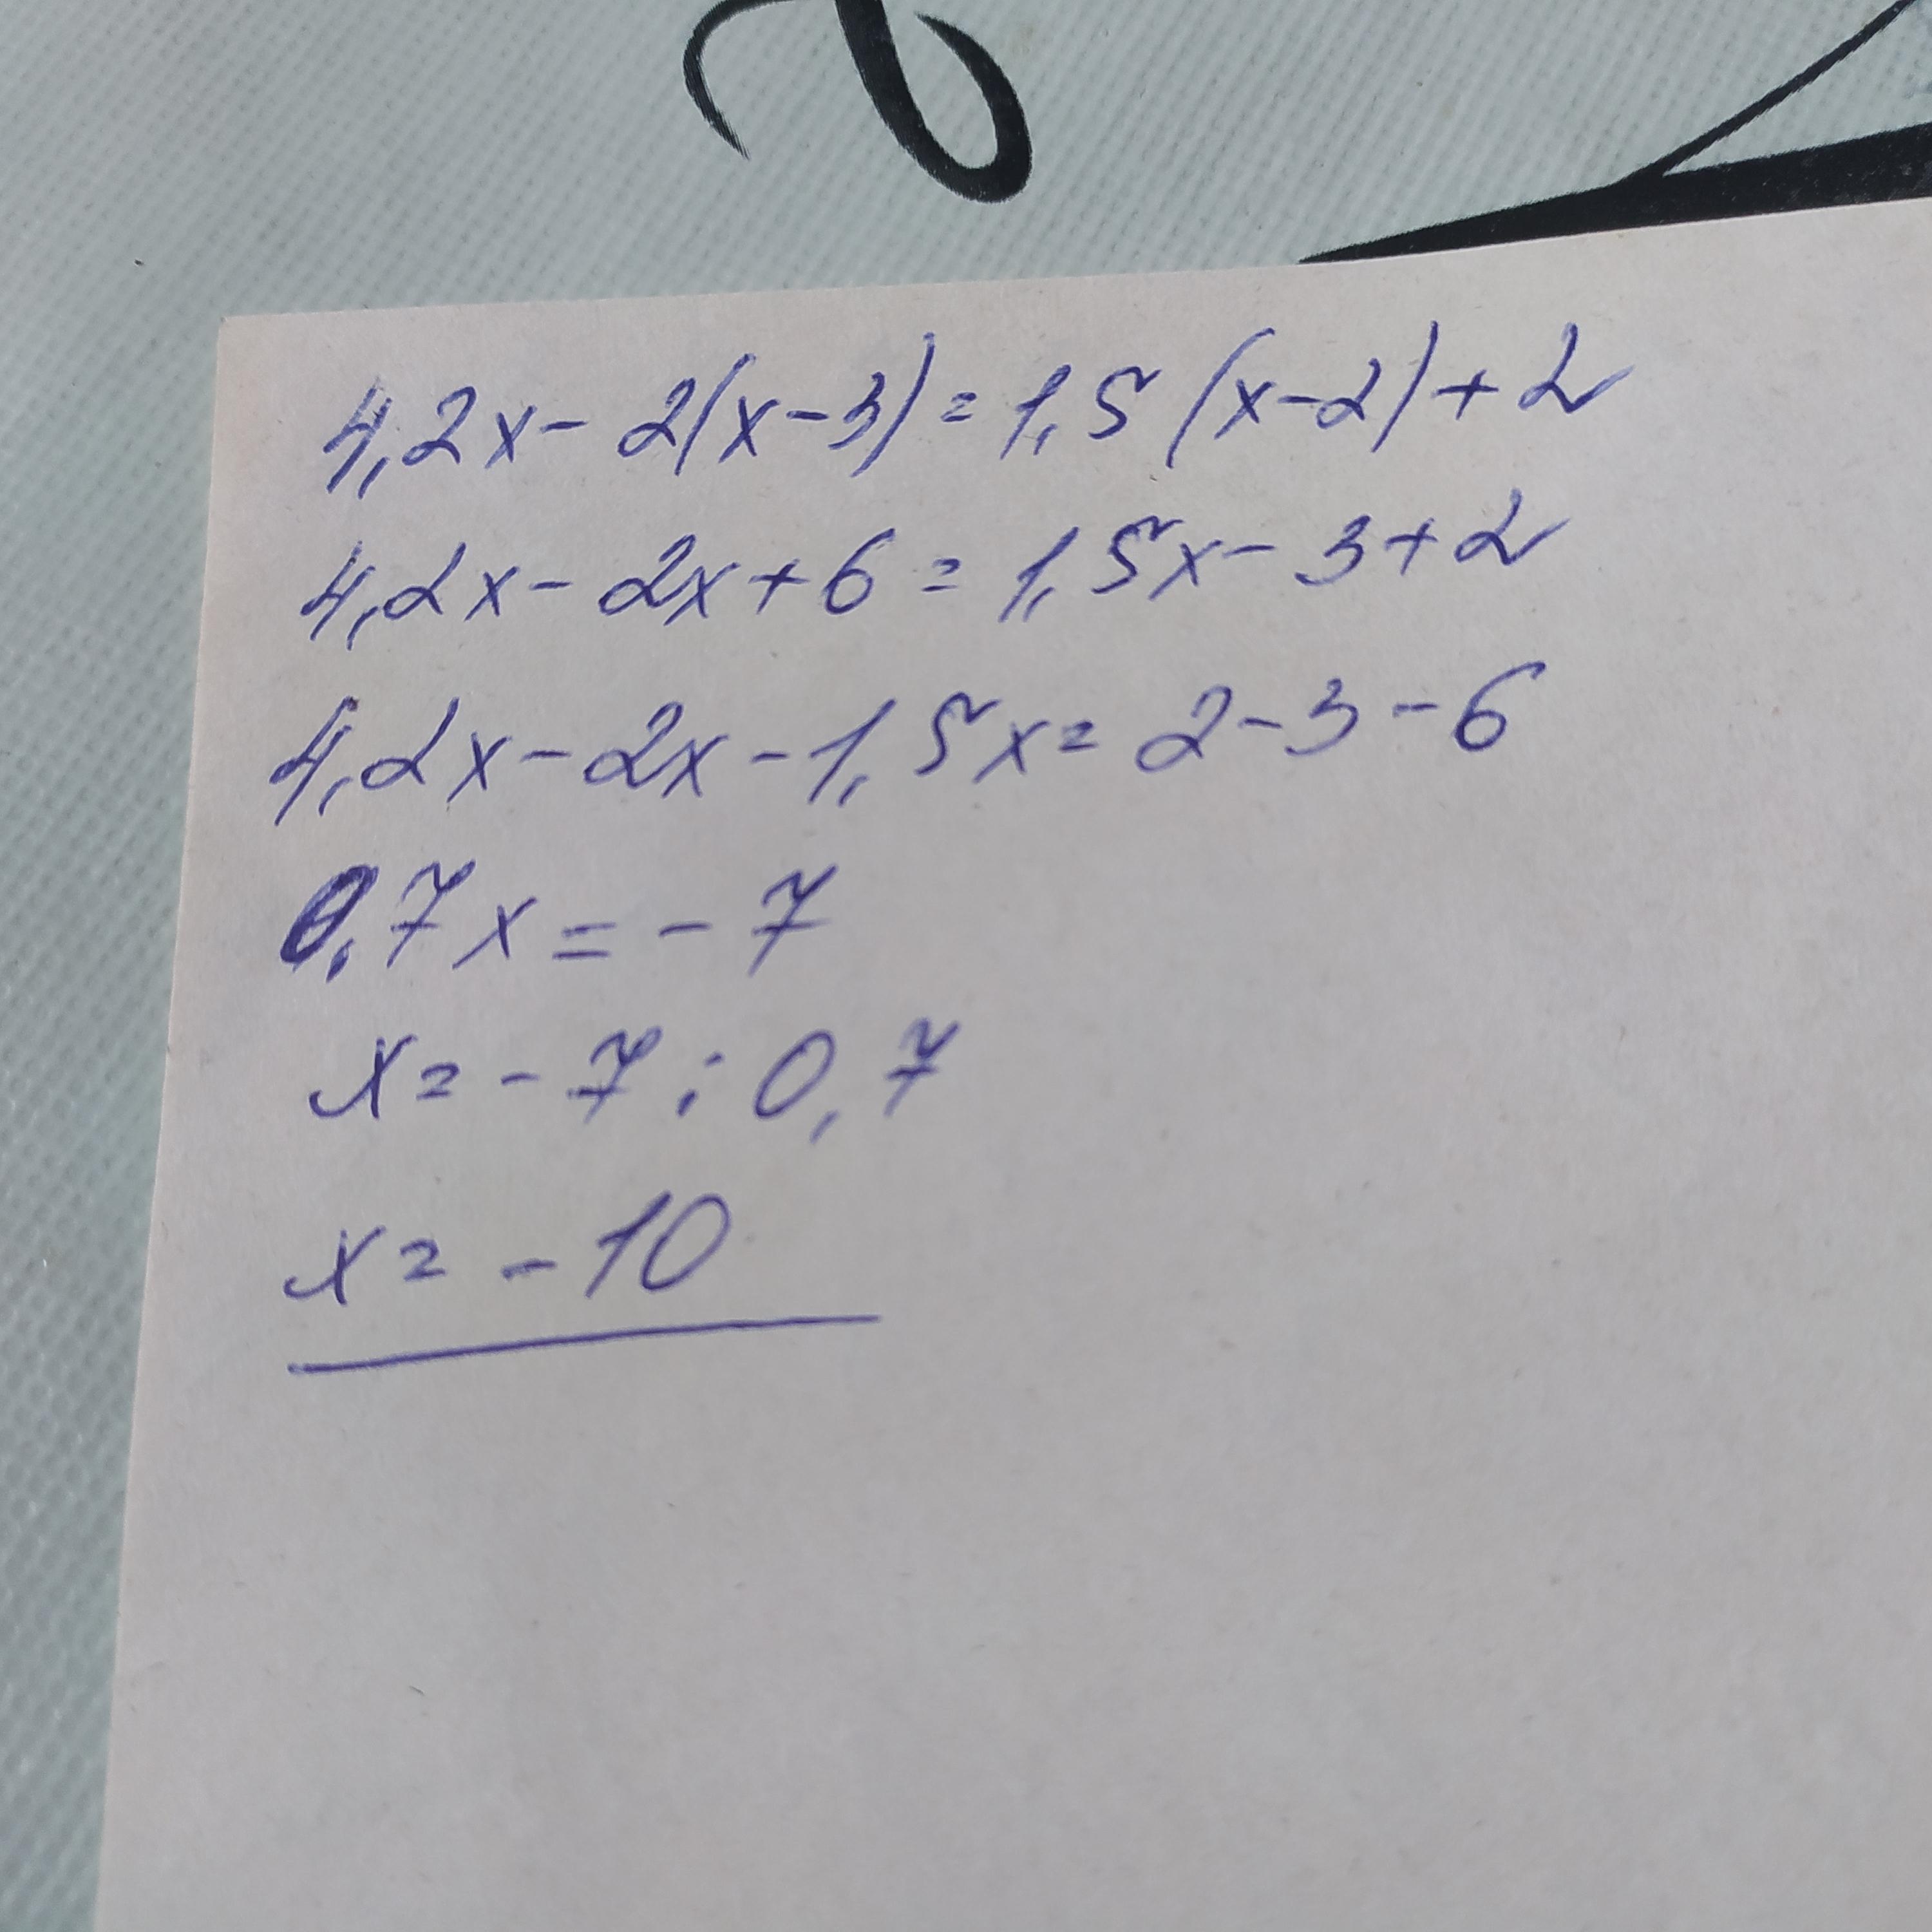 4,2x - 2(x-3) = 1,5(x-2)+2
4,2x - 2x + 6 = 1,5x - 3 + 2
4,2x - 2x - 1,5x = 2 - 3 - 6
0,7x = - 7
x = - 7 : 0,7
x = - 10